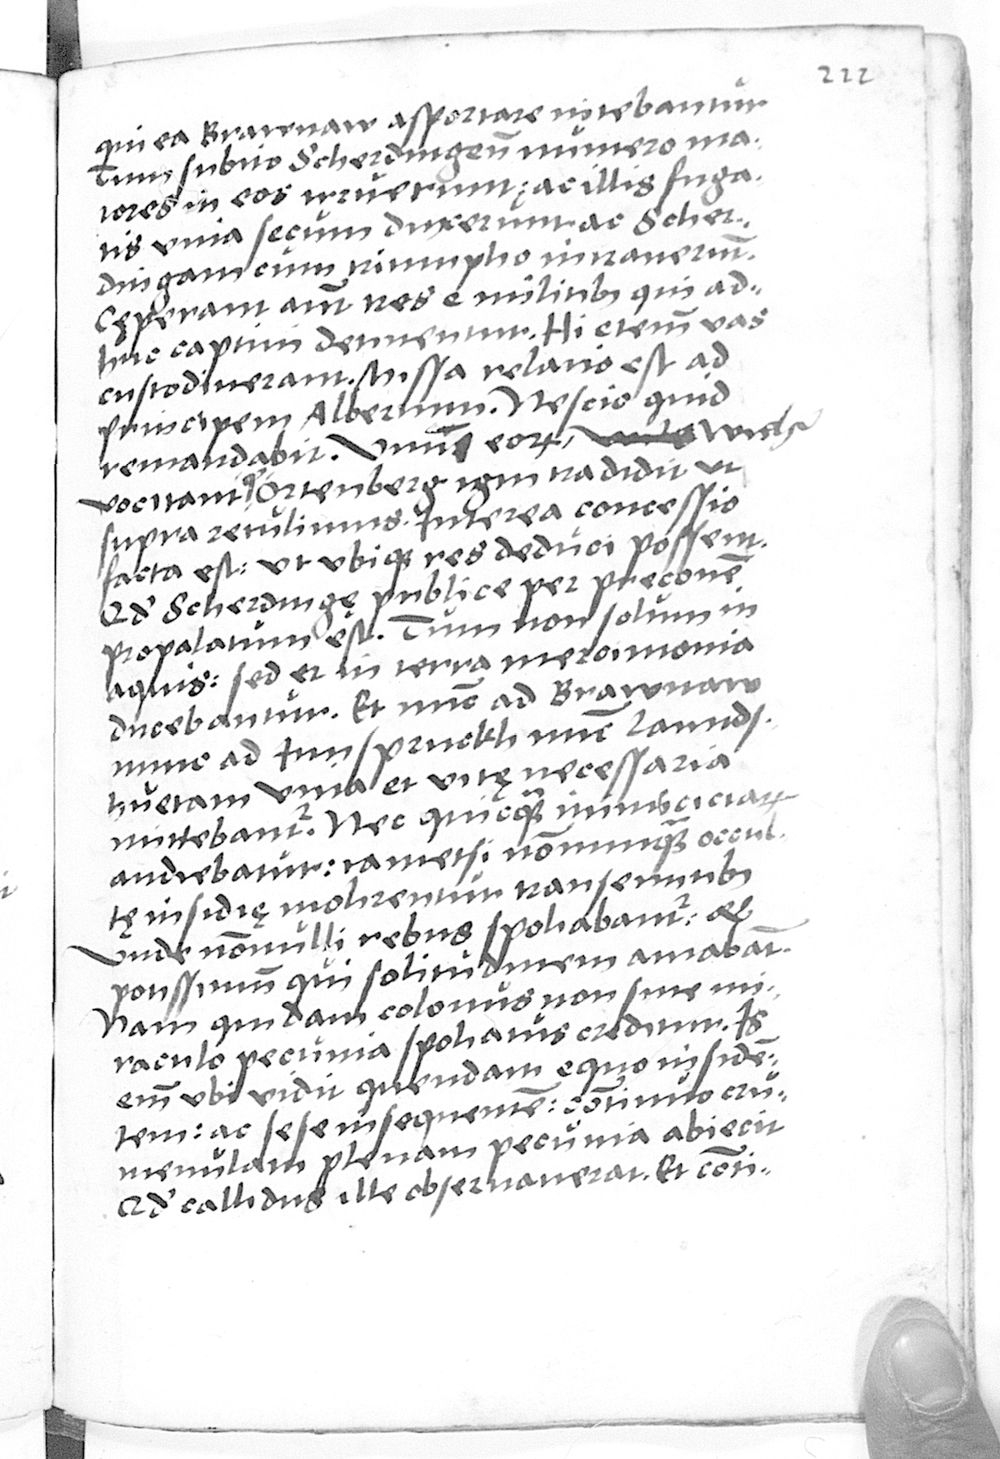 222
qui ea Brawnaw asportare nitebantur
Tum subito Scherdingeñ numero ma-
iores in eos irruerunt: ac illis fuga-
tis vina secum duxerunt ac Scher-
dingam cum triumpho intraverūt.
Cęperant aūt tres e militib9 qui ad-
huc captivi detinentur. Hi etem̄ vas
custodiverant. Missa relatio est ad
principem Albertum. Nescio quid
remandabit. Unū eorꝝ,
vocitant Ortenberg igni tradidit ut
supra retulimus. Interea concessio
facta est: ut ubiqꝫ res deduci possent.
Qd' Scherdingę publice per preconē
propalatum est. Tum non solum in
aquis: sed et in terra merorimonia
ducebantur. Et nūc ad Brawnaw
nunc ad Innspruckh nūc Lannds-
huetam vina et vitę necessaria
mittebant2. Nec quicq̄ inimiciciarꝝ
audiebatur: tametsi nōnunq̄ occul-
tę insidię molirentur transeuntib9
Unde nōnulli rebus spoliabant2: ac
potissimū qui solitudinem amabāt.
Nam quidam colonus non sine mi-
raculo pecunia spoliatus creditur. Is
em̄ ubi vidit quendam equo insidē-
tem: ac sese insequentē: cōtinuo cru-
menulam plenam pecunia abiecit
Qd' callidus ille observaverat. Et cōti-